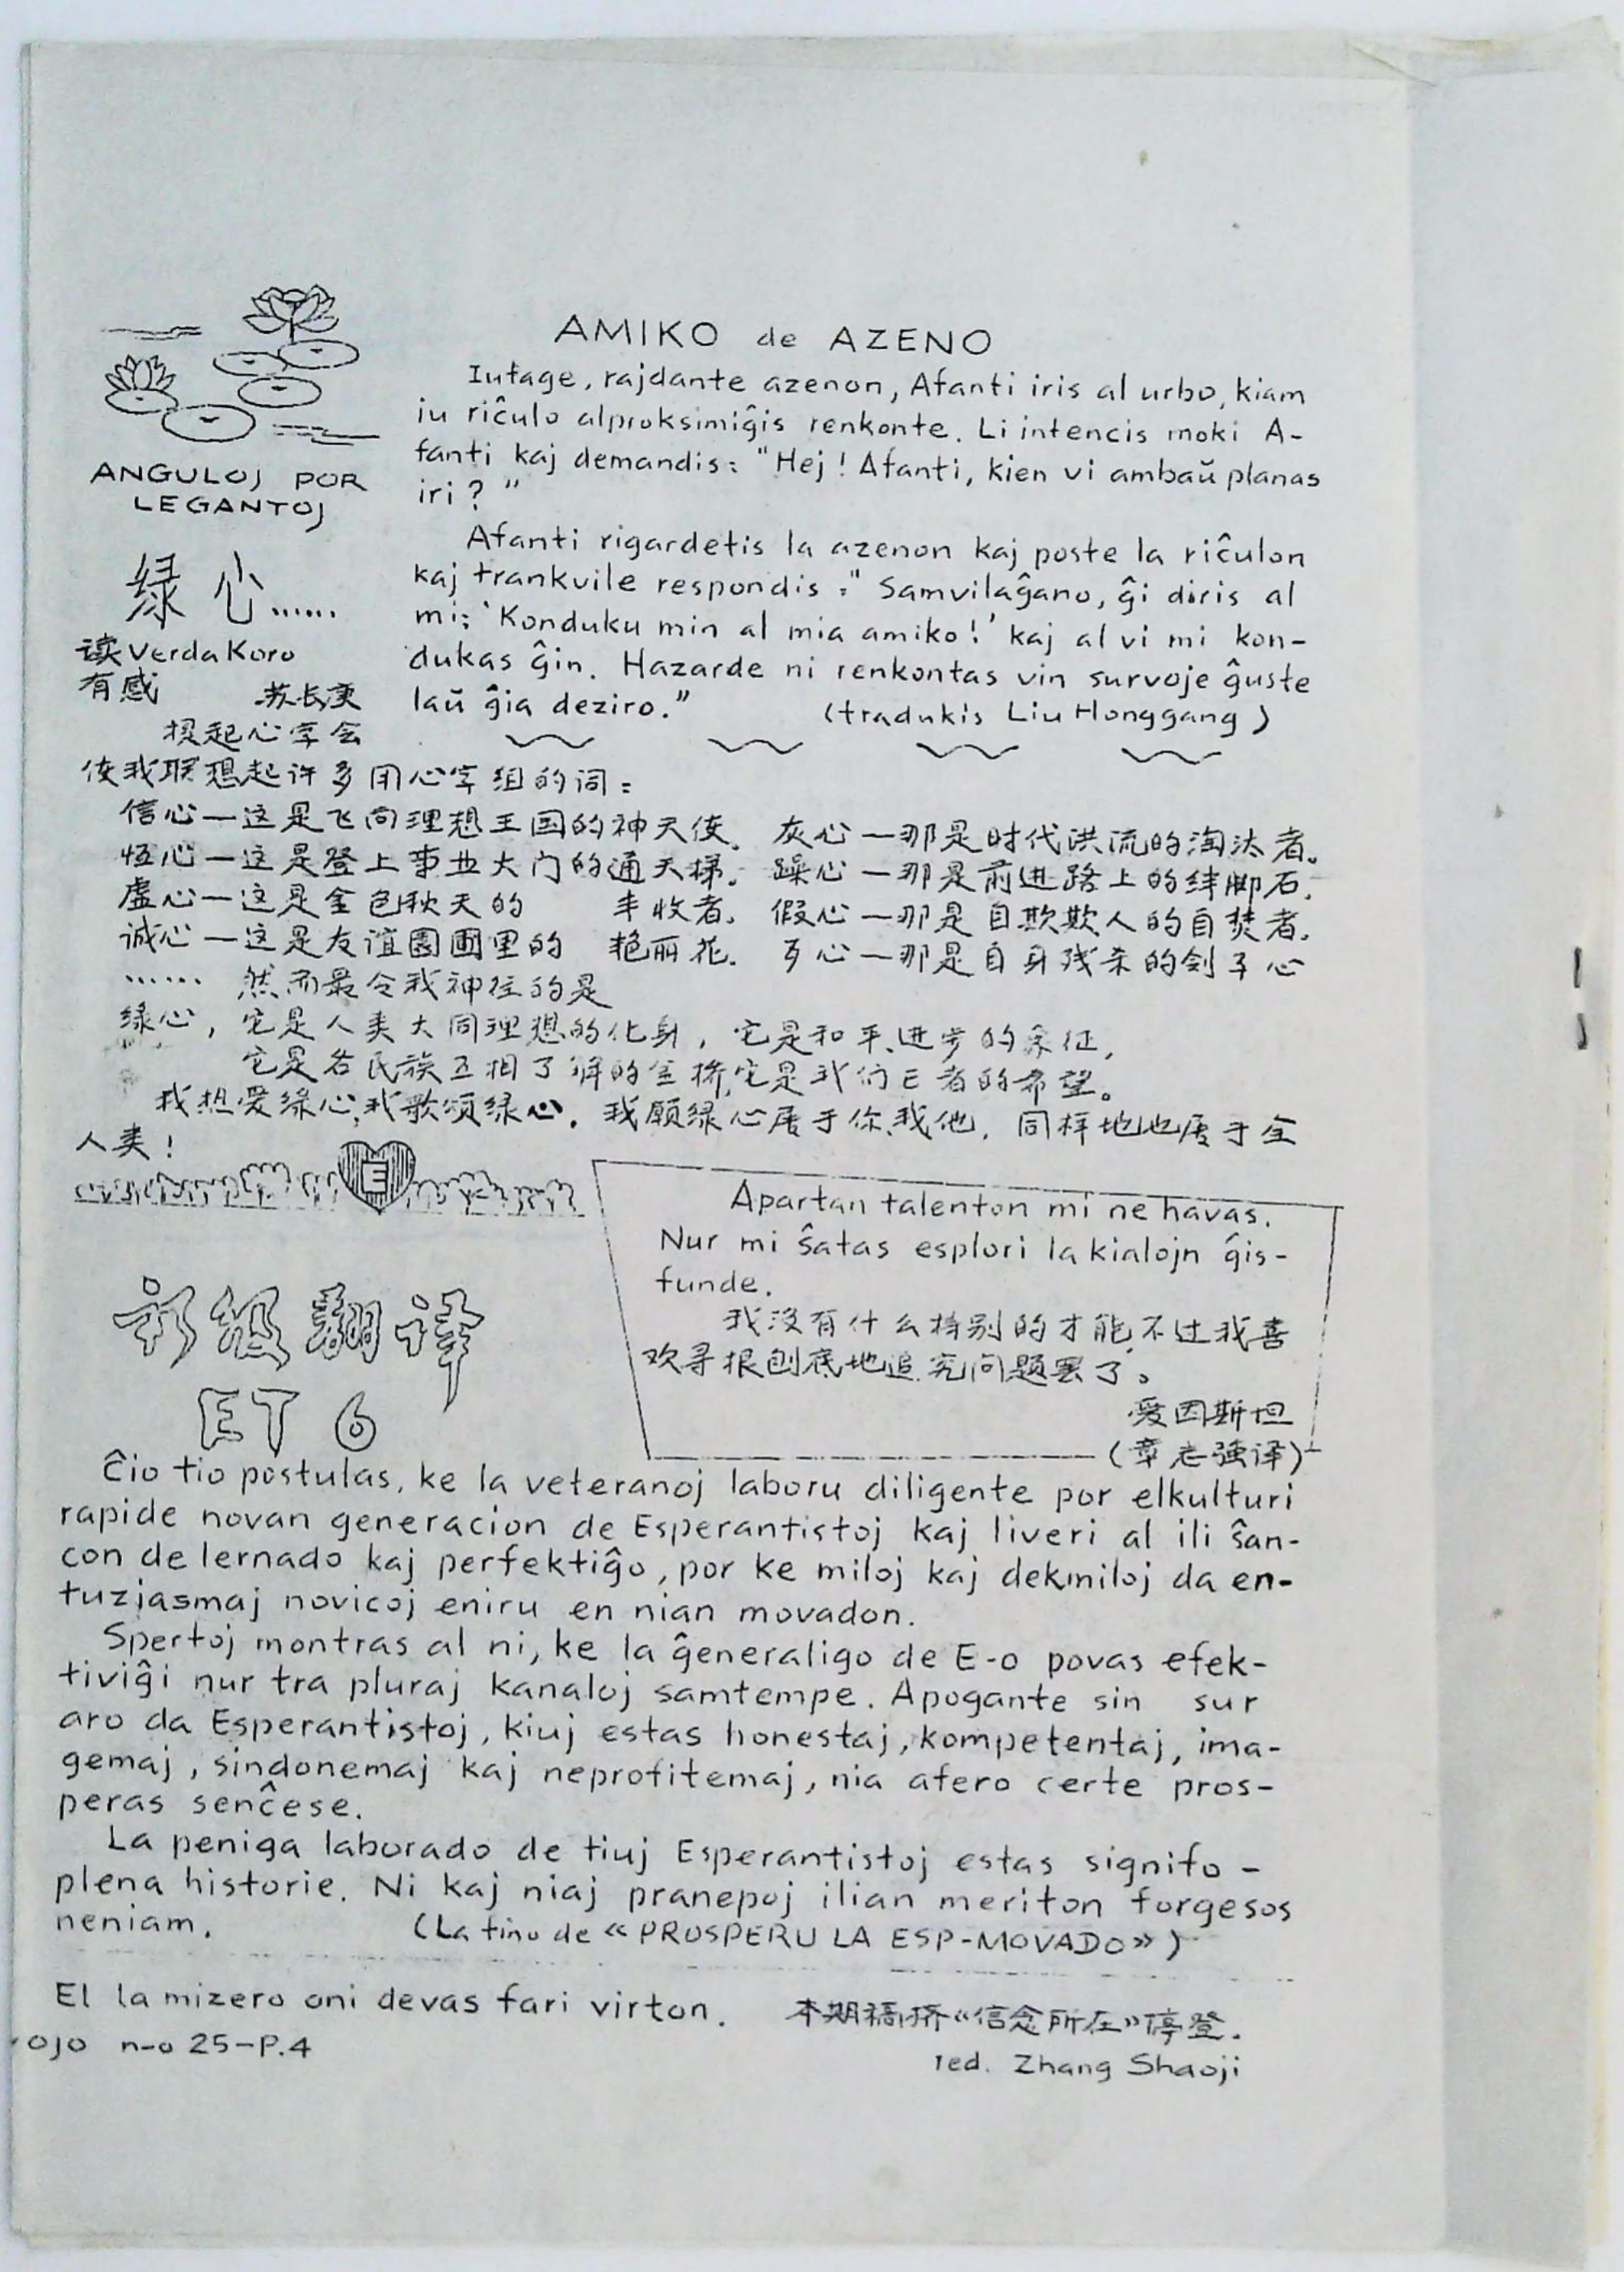 ANGULOJ POR
LEGANTOJ
AMIKO de AZENO
Iutage, rajdante azenon, Afanti iris al urbo, kiam
iu riĉulo alproksimiĝis renkonte. Li intencis moki A-
fanti kaj demandis: "Hej! Afanti, kien vi ambaŭ planas
iri?"
Afanti rigardetis la azenon kaj poste la riĉulon
kaj trankvile respondis: "Samvilaĝano, ĝi diris al
mi: 'Konduku min al mia amiko!' kaj al vi mi kon-
dukas ĝin. Hazarde ni renkontas vin survoje ĝuste
laŭ ĝia deziro."
(tradukis Liu Honggang)
绿心……
读Verda Koro
有感 苏长庚
提起心字会
使我联想起许多用心字组的词:
信心—这是飞向理想王国的神天使. 灰心—那是时代洪流的淘汰者。
恒心—这是登上事业大门的通天梯. 躁心—那是前进路上的绊脚石.
虚心—这是金色秋天的 丰收者. 假心—那是自欺欺人的自焚者.
诚心—这是友谊园圃里的 艳丽花. 歹心—那是自身残杀的刽子心
…… 然而最令我神往的是
绿心, 它是人类大同理想的化身, 它是和平、进步的象征,
它是各民族互相了解的金桥,它是我们E者的希望。
我热爱绿心,我歌颂绿心. 我愿绿心属于你、我他, 同样地也属于全
人类!
E
Apartan talenton mi ne havas.
Nur mi ŝatas esplori la kialojn ĝis-
funde.
我没有什么特别的才能,不过我喜
欢寻根刨底地追究问题罢了。
爱因斯坦
(章志强译)
初级翻译
ET 6
Ĉio tio postulas, ke la veteranoj laboru diligente por elkulturi
rapide novan generacion de Esperantistoj kaj liveri al ili ŝan-
con de lernado kaj perfektiĝo, por ke miloj kaj dekmiloj da en-
tuziasmaj novicoj eniru en nian movadon.
Spertoj montras al ni, ke la ĝeneraligo de E-o povas efek-
tiviĝi nur tra pluraj kanaloj samtempe. Apogante sin sur
aro da Esperantistoj, kiuj estas honestaj, kompetentaj, ima-
gemaj, sindonemaj kaj neprofitemaj, nia afero certe pros-
peras senĉese.
La peniga laborado de tiuj Esperantistoj estas signifo-
plena historie. Ni kaj niaj pranepoj ilian meriton forgesos
neniam. (La fino de «PROSPERU LA ESP-MOVADO»)
El la mizero oni devas fari virton. 本期稿挤“信念所在”停登.
OJO n-o 25-P.4
red. Zhang Shaoji